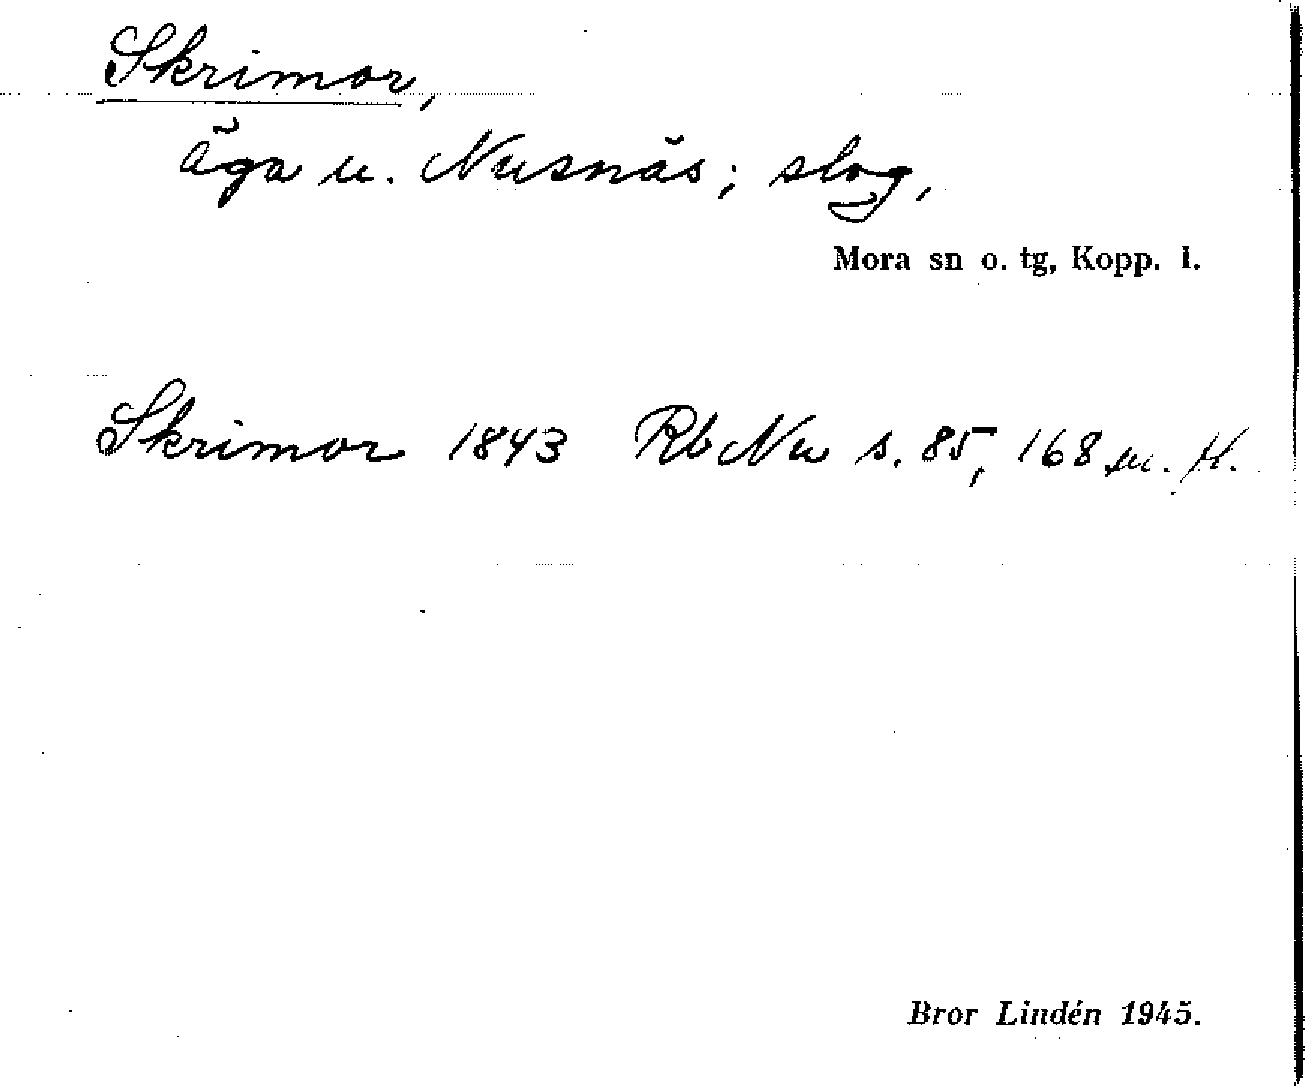 Skrimor,
äga u. Nusnäs; slog,
Mora sn o. tg, Kopp. l.
Skrimor 1843 Rb Nu s. 85, 168 m. K.
Bror Lindén 1945.